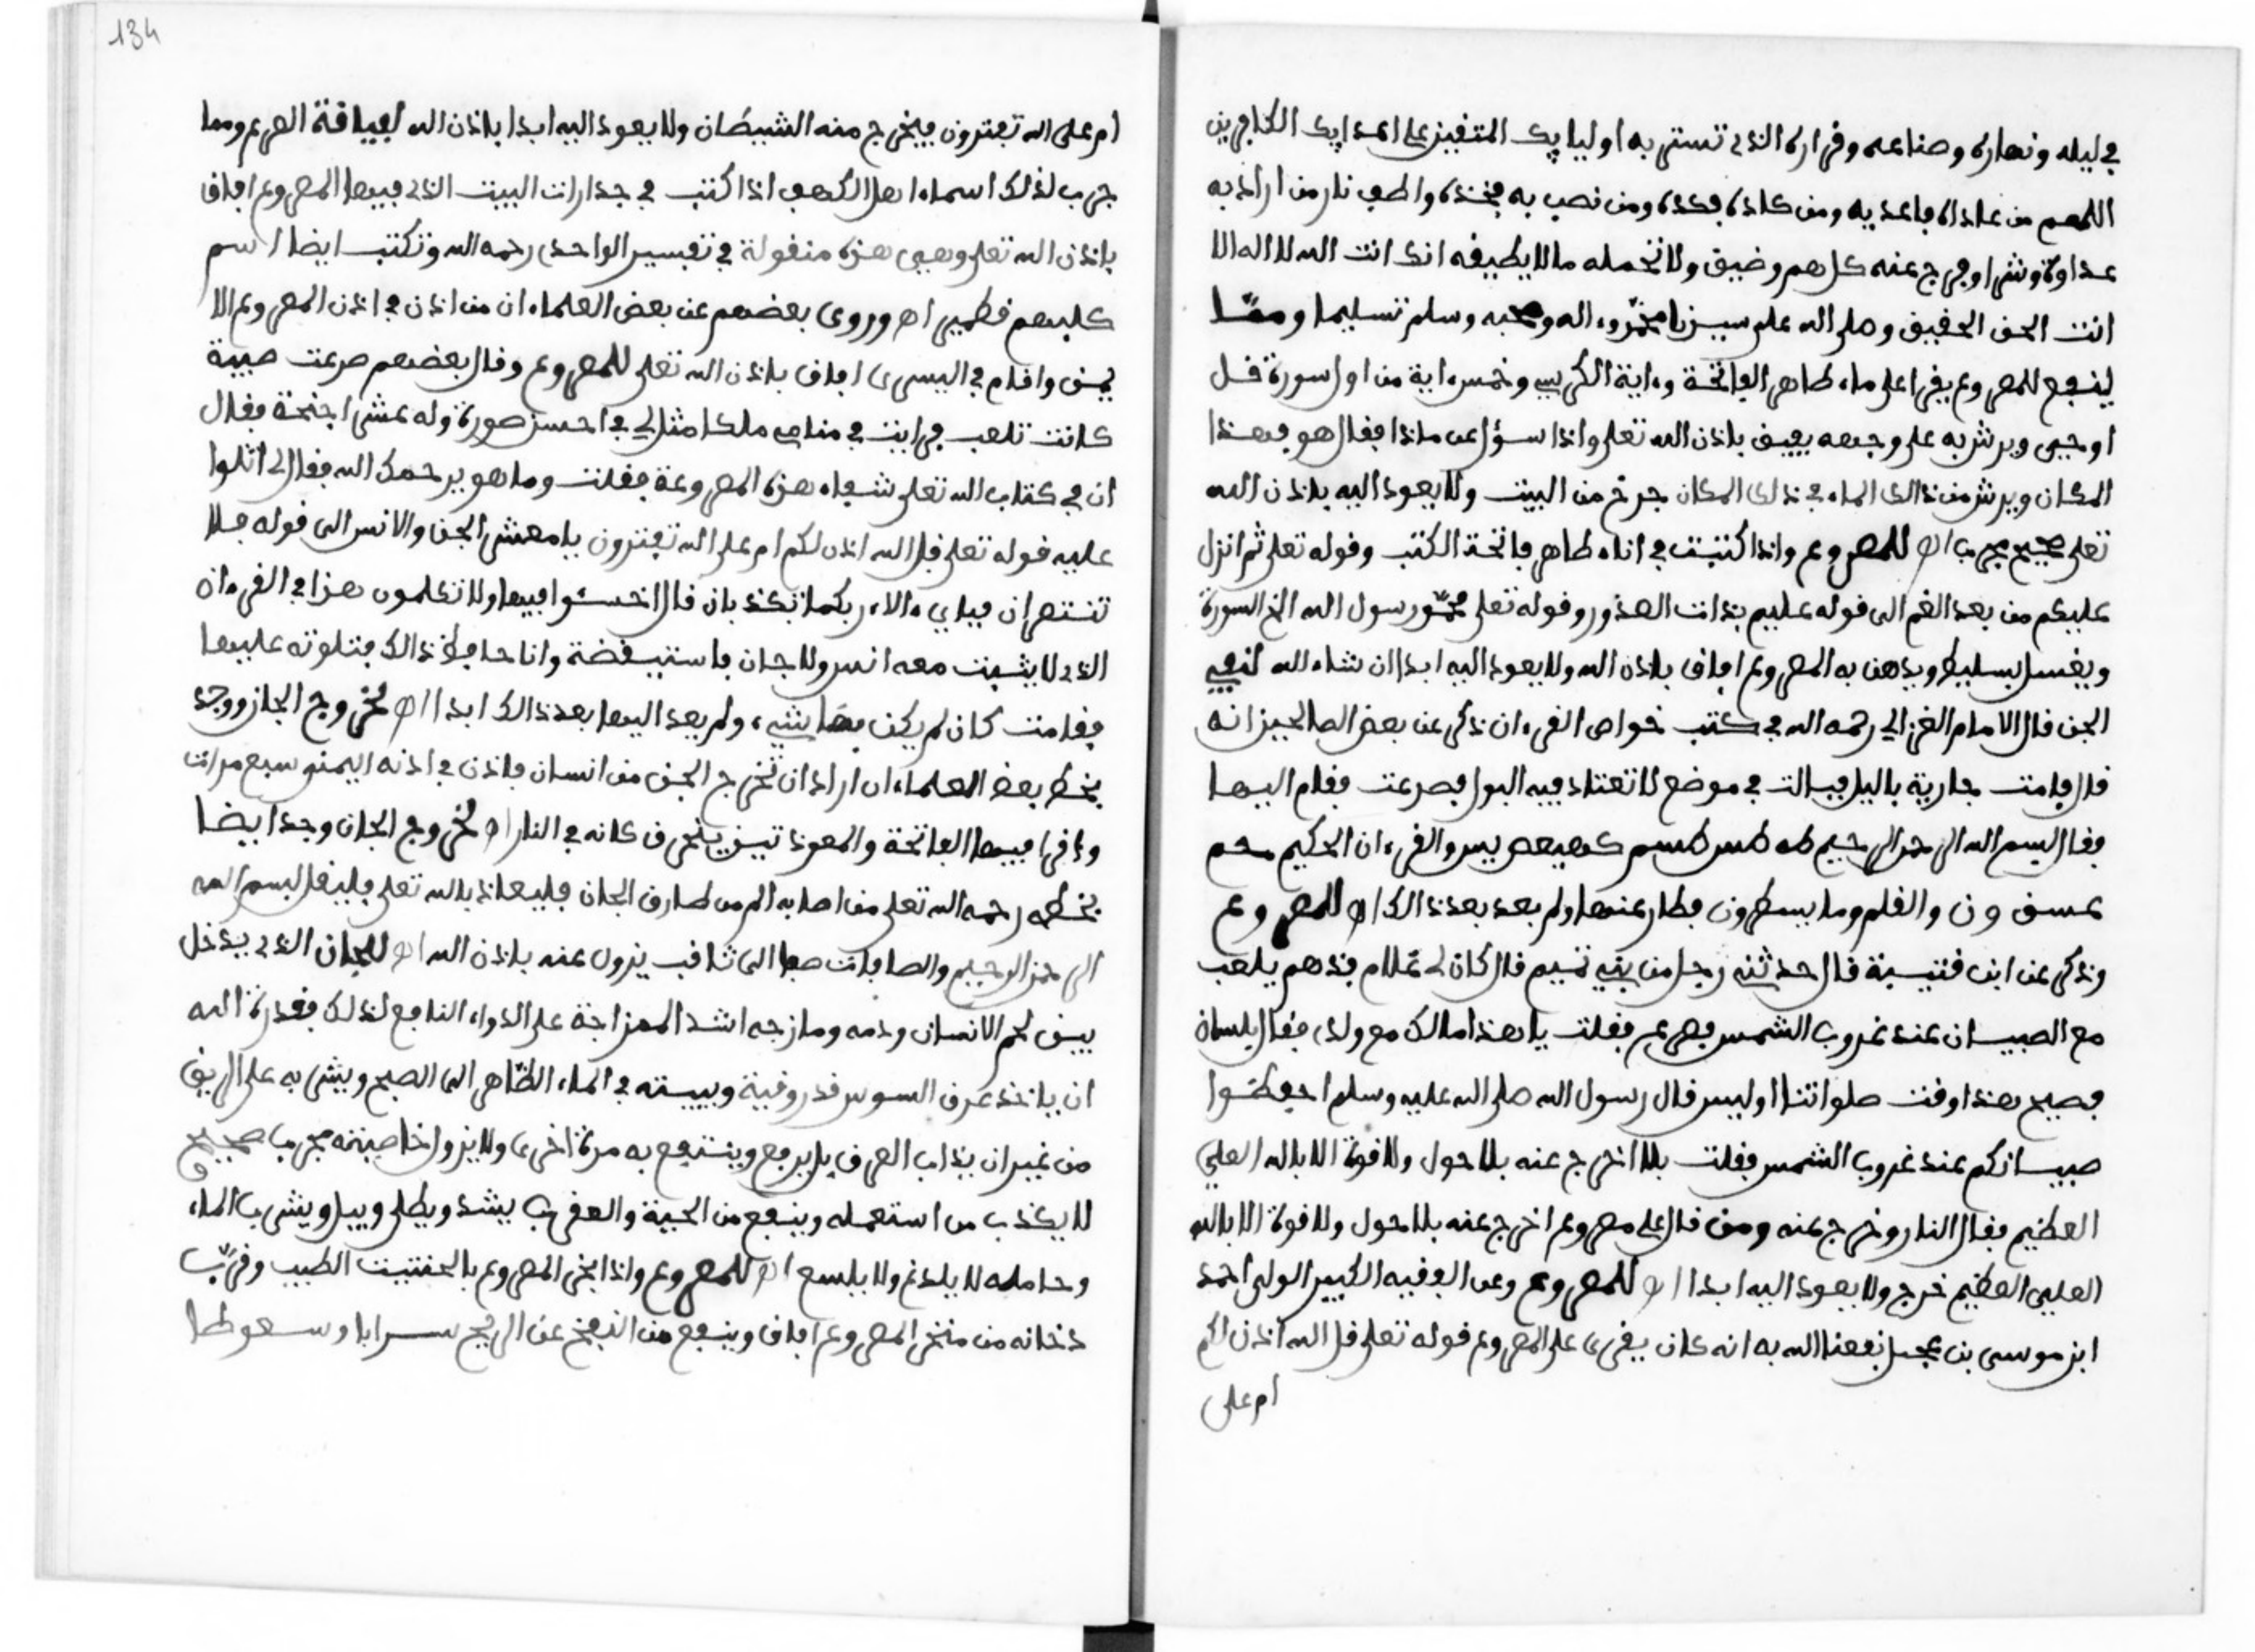 في ليله ونهاره وضناعنه وقراره الذي تستر به اوليايك المتقين على اعدايك الكافرين
اللهم من عاداه فاعديه ومن كاده فكده ومن نصب به فخذه واطفي نار من اراد به
عداوة وشرا وفرج عنه كل هم وضيق ولا تحمله ما لا يطيقه انك انت الله لا اله الا
انت الحق الحقيق وصلى الله على سيدنا محمد وءاله وصحبه وسلم تسليما ومما
ينفع للمصروع يقرا على ماء طاهر الفاتحة وءاية الكرسي وخمس ءاية من اول سورة قل
اوحي ويرش به على وجهه يفيق باذن الله تعلى واذا سؤل عن ماذا فقال هو فهذا
المكان ويرش من ذالك الماء في ذلك المكان خرج من البيت ولا يعود اليه باذن الله
تعلى صحيح مجرب اه للمصروع واذا كتبت في اناء طاهر فاتحة الكتب وقوله تعلى ثم انزل
عليكم من بعد الغم الى قوله عليم بذات الصذور وقوله تعلى محمد رسول الله الخ السورة
ويغسل بسليط ويدهن به المصروع افاق باذن الله ولا يعود اليه ابدا ان شاء الله لنفي
الجن قال الامام الغزالي رحمه الله في كتب خواص القرءان ذكر عن بعض الصالحين انه
قال قامت جارية باليل فبالت في موضع لا تعتاد فيه البول فصرعت فقام اليها
فقال بسم الله الرحمن الرحيم طه طس طسم كهيعص يس والقرءان الحكيم حم
عسق ون والقلم وما يسطرون فطار عنها ولم يعد بعد ذالك اه للمصروع
وذكر عن ابن قتيبة قال حدثني رجل من بني تميم قال كان لي غلام فذهم يلعب
مع الصبيان عند غروب الشمس فصرع فقلت يا هذا مالك مع ولدي فقال بلسان
فصيح هذا وقت صلواتنا اوليس قال رسول الله صلى الله عليه وسلم احفظوا
صبيانكم عند غروب الشمس فقلت بلا اخرج عنه بلا حول ولا قوة الا بالله العلي
العظيم فقال النار وخرج عنه ومن قال على مصروع اخرج عنه بلا حول ولا قوة الا بالله
العلي العظيم خرج ولا يعود اليه ابدا اه للمصروع وعن الفقيه الكبير الولي احمد
ابن موسى بن عجيل نفعنا الله به انه كان يقرى على المصروع قوله تعلى قل الله اذن لكم
ام على
134
ام على الله تفترون فيخرج منه الشيطان ولا يعود اليه ابدا باذن الله لفياقة الصرع ومما
جرب لذلك اسماء اهل الكهف اذا كتب في جدارات البيت الذي فيها المصروع افاق
باذن الله تعلى وهي هذه منقولة في تفسير الواحدي رحمه الله وتكتب ايضا اسم
كلبهم قطمير اه وروى بعضهم عن بعض العلماء ان من اذن في اذن المصروع الا
يمن واقام في اليسرى افاق باذن الله تعلى للمصروع وقال بعضهم صرعت صبية
كانت تلعب فرايت في منامي ملكا مثل لي في احسن صورة وله عشر اجنحة فقال
ان في كتاب الله تعلى شفاء هذه المصروعة فقلت وما هو يرحمك الله فقال لي اتلوا
عليه قوله تعلى قل الله اذن لكم ام على الله تفترون يا معشر الجن والانس الى قوله فلا
تنتصران فباي ءالاء ربكما تكذبان قال اخسئوا فيها ولا تكلمون هذا في القرءان
الذي لا يثبت معه انس ولا جان فاستيقضة وانا حافظ ذالك فتلوته عليها
فقامت كان لم يكن بها شيء ولم يعد اليها بعد ذالك ابدا اه لخروج الجان ووجد
بخط بعض العلماء ان اراد ان تخرج الجن من انسان فاذن في اذنه اليمنى سبع مرات
واقرا فيها الفاتحة والمعوذتين يحرق كانه في النار اه لخروج الجان وجد ايضا
بخطه رحمه الله تعلى من اصابه الم من طارق الجان فليعاذ بالله تعلى وليقل بسم الله
الرحمن الرحيم والصافات صفا الى ثاقب يزول عنه باذن الله اه للجان الذي يدخل
بين لحم الانسان ودمه ومازجه اشد الممزاجة على الدواء النافع لذلك فقدرة الله
ان ياخذ عرق السوس قدر وقية ويبيته في الماء الطاهر الى الصبح ويشربه على الريق
من غير ان يذاب العرق بل يرفع وينتفع به مرة اخرى ولا يزول خاصيته مجرب صحيح
لا يكذب من استعمله وينفع من الحية والعقرب يشد ويطلى ويبل ويشرب الماء
وحامله لا يلدغ ولا يلسع اه للمصروع واذا بخر المصروع بالحنتيت الطيب وقرب
دخانه من منخر المصروع افاق وينفع من النفخ عن الريح سرابا وسعوطا